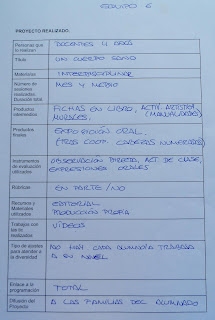 EQUIPO 6
PROYECTO REALIZADO:
Personas que lo realizan
DOCENTES Y
Título
UN CUERPO SANO
Materia/as
INTERDISCIPLINAR
Número de sesiones realizadas. Duración total
MES Y MEDIO
Productos intermedios
FICHAS EN LIBRO, ACTIV. ARTÍSTICAS
MURALES. (MANUALIDADES)
Productos finales
EXPOSICIÓN ORAL.
(TRAS COOP. CABEZAS NUMERADAS)
Instrumentos de evaluación utilizados
OBSERVACIÓN DIRECTA, ACT. DE CLASE,
EXPRESIONES ORALES
Rúbricas
EN PARTE / NO
Recursos y Materiales utilizados
EDITORIAL
PRODUCCIÓN PROPIA
Trabajos con las tic realizados
VÍDEOS
Tipo de ajustes para atender a la diversidad
NO HAY. CADA ALUMNO/A TRABAJA
A SU NIVEL
Enlace a la programación
TOTAL
Difusión del Proyecto
A LAS FAMILIAS DEL ALUMNADO